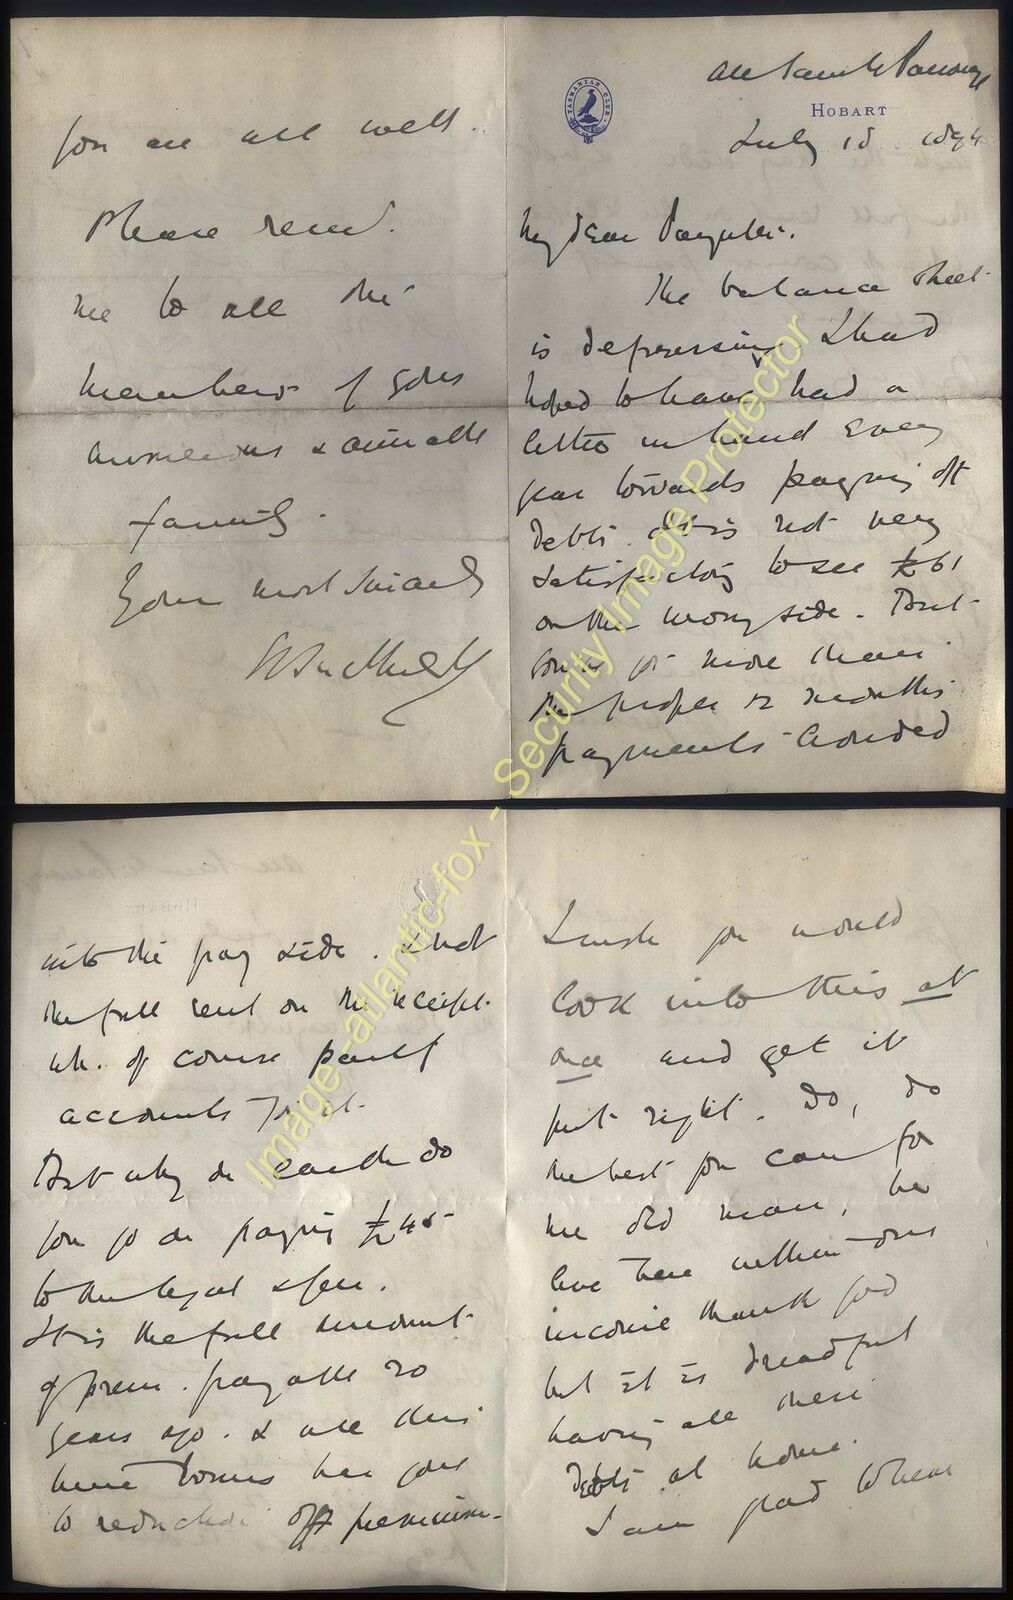 All Saints Parsonage
TASMANIAN CLUB
HOBART
July 18 1894
My Dear Paynter.
The balance sheet
is depressing I had
hoped to have had a
little in hand every
year towards paying off
debts. It is not very
satisfactory to see £61
on the wrong side. But
for more than
the proper 12 months
payments crowded
into the pay side. & not
the full rent on the receipt
wh. of course partly
accounts for it.
But why on earth do
you go on paying £45
to the legal & gen.
It is the full amount
of prem. payable 20
years ago. & all this
time bonus has gone
to reduction off premium.
I wish you would
look into this at
once and get it
put right. Do, do
the best you can for
me old man, we
live here within our
income thank God
but it is dreadful
having all these
debts at home.
I am glad to hear
you are all well.
Please remd.
me to all the
members of your
numerous & amiable
family.
Yours most sincerely
Image -atlantic-fox - Security Image Protector